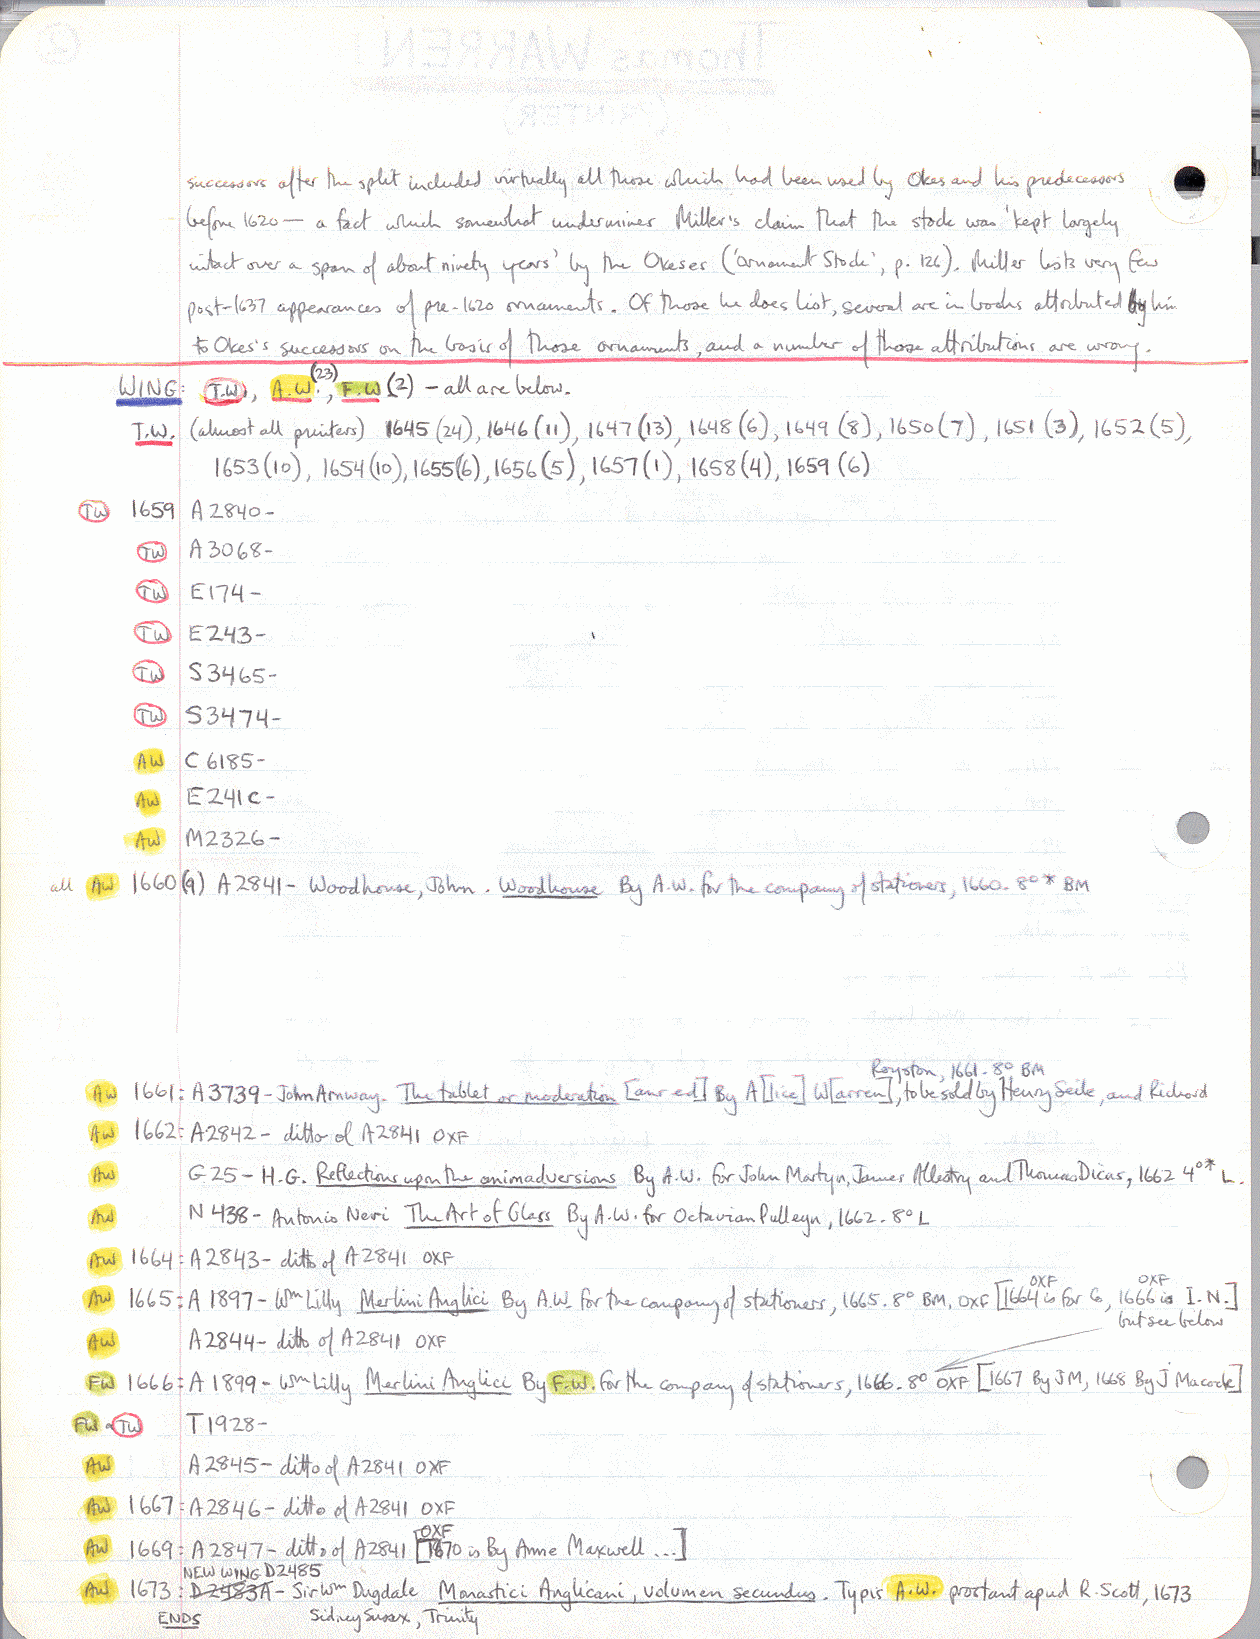 successors after the split included virtually all those which had been used by Okes and his predecessors
before 1620 — a fact which somewhat undermines Miller's claim that the stock was 'kept largely
intact over a span of about ninety years' by the Okeses ('Ornament Stock', p. 126). Miller lists very few
post-1637 appearances of pre-1620 ornaments. Of those he does list, several are in books attributed by him
to Okes's successors on the basis of those ornaments, and a number of those attributions are wrong.
WING: T.W., A.W. (23), F.W (2) – all are below.
T.W. (almost all printers) 1645 (24), 1646 (11), 1647 (13), 1648 (6), 1649 (8), 1650 (7), 1651 (3), 1652 (5),
1653 (10), 1654 (10), 1655 (6), 1656 (5), 1657 (1), 1658 (4), 1659 (6)
TW 1659 A2840-
TW A3068-
TW E174-
TW E243-
TW S3465-
TW S3474-
AW C6185-
AW E241C-
AW M2326-
all AW 1660 (9) A2841- Woodhouse, John. Woodhouse By A.W. for the company of stationers, 1660. 8°* BM
Royston, 1661. 8° BM
AW 1661: A3739- John Arnway. The tablet or moderation [anr ed] By A[lice] W[arren], to be sold by Henry Seile, and Richard
AW 1662: A2842- ditto of A2841 OXF
AW G25- H.G. Reflections upon the animadversions By A.W. for John Martyn, James Allestry and Thomas Dicas, 1662 4°* L.
AW N438- Antonio Neri The Art of Glass By A.W. for Octavian Pulleyn, 1662. 8° L
AW 1664: A2843- ditto of A2841 OXF
AW 1665: A1897- Wm Lilly Merlini Anglici By A.W. for the company of stationers, 1665. 8° BM, OXF [1664 OXF is for G, 1666 OXF is I.N.]
but see below
AW A2844- ditto of A2841 OXF
FW 1666: A1899- Wm Lilly Merlini Anglici By F.W. for the company of stationers, 1666. 8° OXF [1667 By JM, 1668 By J Macock]
FW TW T1928-
AW A2845- ditto of A2841 OXF
AW 1667: A2846- ditto of A2841 OXF
AW 1669: A2847- ditto of A2841 [1670 OXF is By Anne Maxwell ...]
NEW WING D2485
AW 1673: D2483A- Sir Wm Dugdale Monastici Anglicani, volumen secundus. Typis A.W. prostant apud R. Scott, 1673
ENDS Sidney Sussex, Trinity